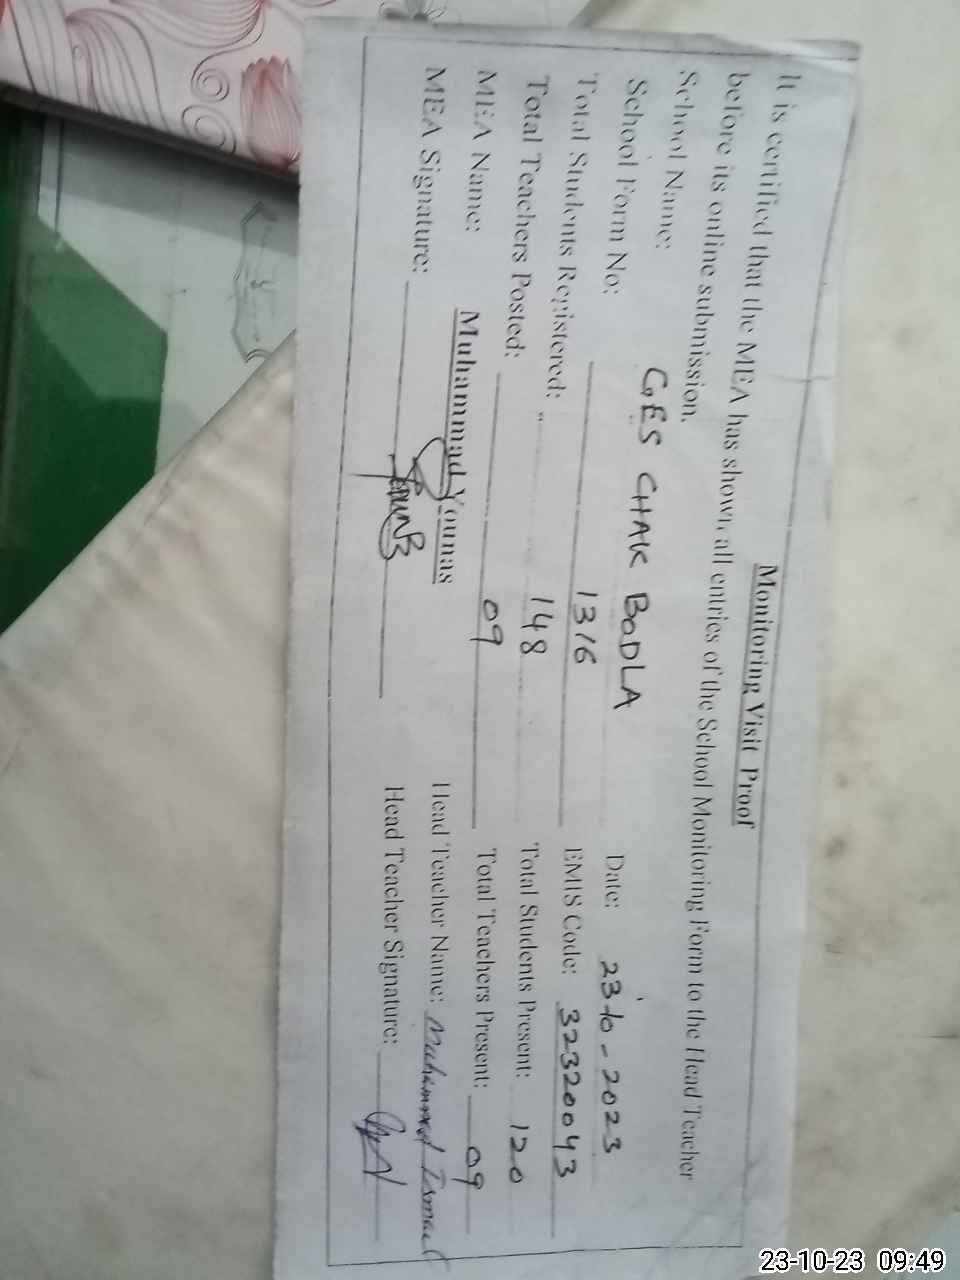 Monitoring Visit Proof
It is certified that the MEA has shown, all entries of the School Monitoring Form to the Head Teacher
before its online submission.
School Name: GES CHAK BODLA Date: 23-10-2023
School Form No: 1316 EMIS Code: 32320043
Total Students Registered: 148 Total Students Present: 120
Total Teachers Posted: 09 Total Teachers Present: 09
MEA Name: Muhammad Younas Head Teacher Name: Muhammad Ismael
MEA Signature: Head Teacher Signature:
23-10-23 09:49